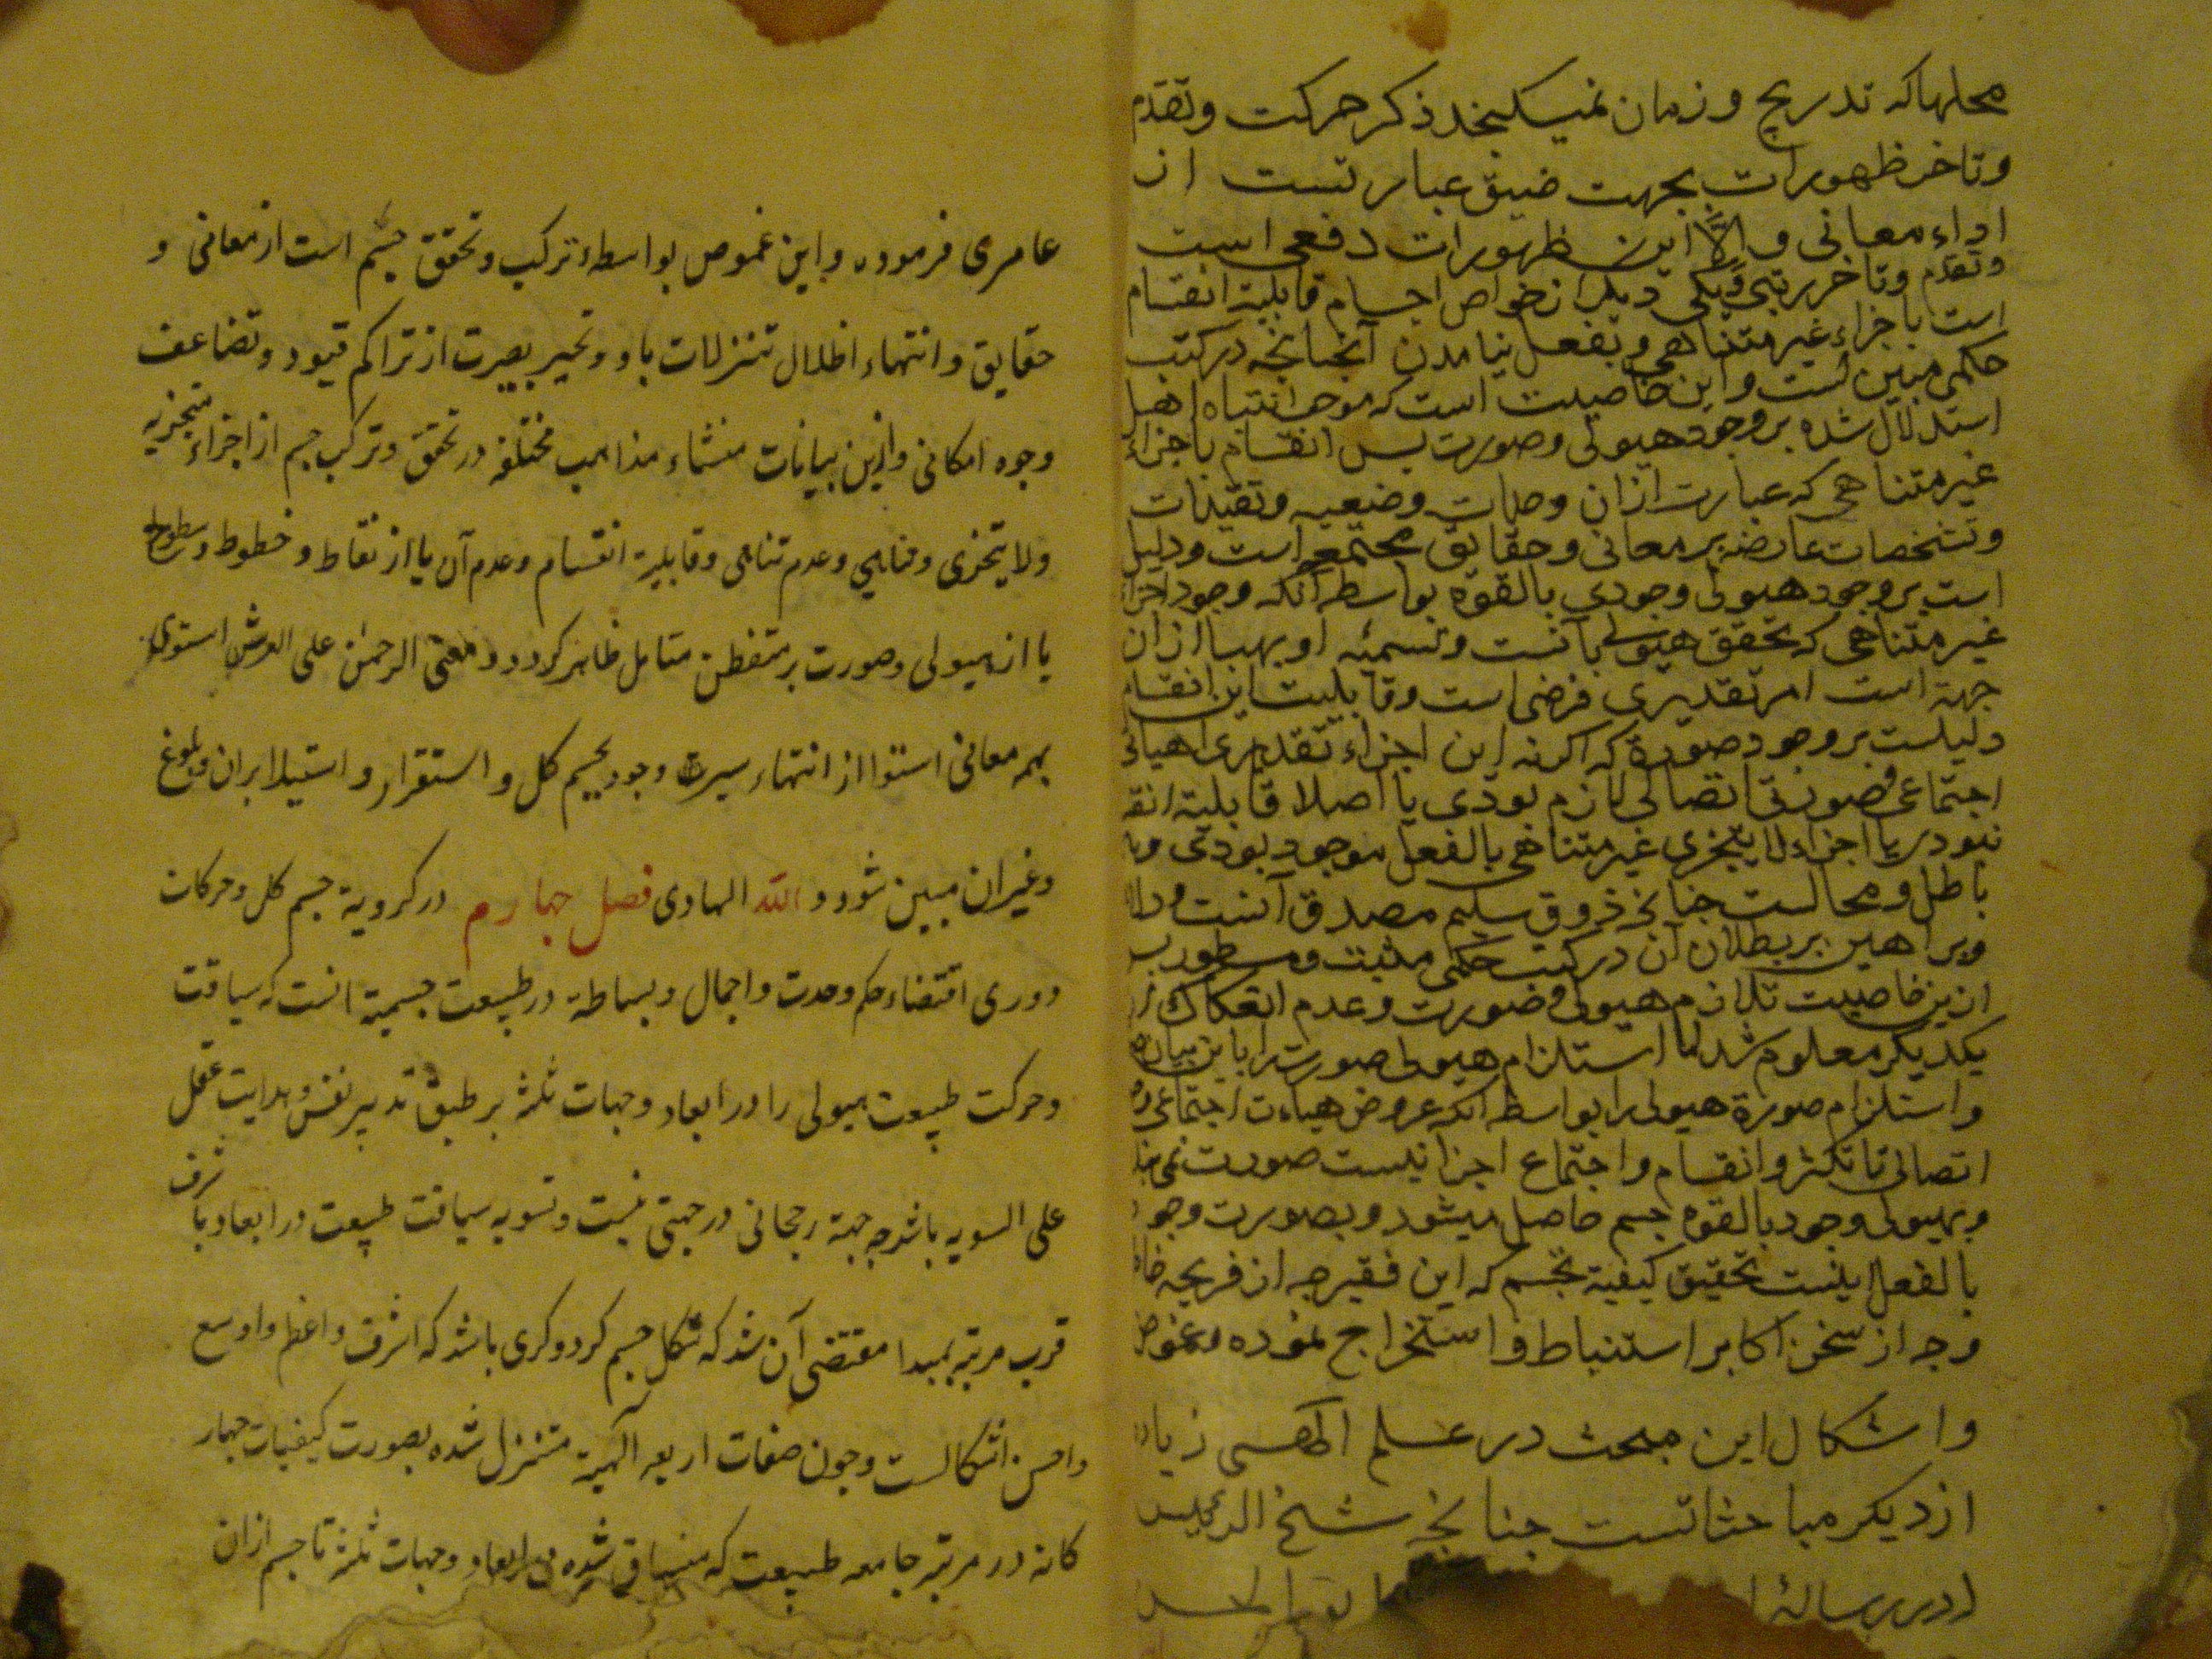 محلها که تدریج و زمان نمیکنجد ذکر حرکت و تقدم
و تاخر ظهورات بجهت ضیق عبارتست از
اداء معانی و الّا این ظهورات دفعی است
و تقدم و تاخر رتبی و یکی دیکر از خواص اجسام قابلیة انقسام
است باجزاء غیر متناهی و بفعل نیامدن آنجنانجه در کتب
حکمی مبین است و این خاصیت است که موجب انتباه اهل
استدلال شده بر وجود هیولی و صورت بس انقسام باجزاء
غیر متناهی که عبارت از ان وصلات وضعیه و تقیدات
و تشخصات عارضه بر معانی و حقایق مجتمع است و دلیل
است بر وجود هیولی وجودی بالقوه بواسطه آنکه وجود اجزا
غیر متناهی که تحقق هیولی بآنست و تسمیه او بهبا ازان
جهة است امر تقدیری فرضی است و قابلیت این انقسام
دلیلست بر وجود صورة که اکر نه این اجزاء تقدیری را هیاتی
اجتماعی و صورتی اتصالی لازم بودی یا اصلا قابلیة انقـ
نبودی یا اجزاء لا یتجزی غیر متناهی بالفعل موجود بودی و
باطل و محالست جنانجه ذوق سلیم مصدق آنست و
و براهین بر بطلان آن در کتب حکمی مثبت و مسطور
ازین خاصیت تلازم هیولی و صورت و عدم انفکاک از
یکدیکر معلوم شد اما استلزام هیولی صورت را باین بیان
و استلزام صورة هیولی را بواسطه انکه عروض هیاءت اجتماعی و
اتصالی تا تکثر و انقسام و اجتماع اجزا نیست صورت نمی
و بهیولی وجود بالقوه جسم حاصل میشود و بصورت وجو
بالفعل اینست تحقیق کیفیة تجسم که این فقیر جه از قریحه
و جه از سخن اکابر استنباط و استخراج نموده و غموض
و اشکال این مبحث در علم الهی زیاد
از دیکر مباحثاتست جنانجه شیخ الرئیس
در رسالة
عامری فرموده و این غموض بواسطهٔ ترکیب و تحقق جسم است از معانی و
حقایق و انتهاء اظلال تنزلات باو و تحیر بصیرت از تراکم قیود و تضاعف
وجوه امکانی و ازین بیانات منشاء مذاهب مختلفه در تحقق و ترکیب جسم از اجزاء متجزیه
و لا یتجزی و تناهی و عدم تناهی و قابلیة انقسام و عدم آن یا از نقاط و خطوط و سطوح
یا از هیولی و صورت بر متفطن متامل ظاهر کردد و معنی الرحمن علی العرش استوی
بهمه معانی استوا از انتهاء سیر وجود بجسم کل و استقرار و استیلا بران و بلوغ
و غیران مبین شود و الله الهادی فصل جهارم در کرویة جسم کل و حرکات
دوری اقتضاء حکم وحدت و اجمال و بساطة در طبیعت جسمیة انست که سیاقت
و حرکت طبیعت هیولی را در ابعاد و جهات ثلثه بر طبق تدبیر نفس و هدایت عقل
علی السویه باشد جه جهة رجحانی در جهتی نیست و تسویه سیاقت طبیعت در ابعاد با شرف
قرب مرتبه بمبدا مقتضی آن شد که شکل جسم کرد و کری باشد که اشرف و اعظم و اوسع
و احسن اشکالست و جون صفات اربعه الهیة متنزل شده بصورت کیفیات جهار
کانه در مرتبه جامعه طبیعت که منساق شده در ابعاد و جهات ثلثة تا جسم ازان